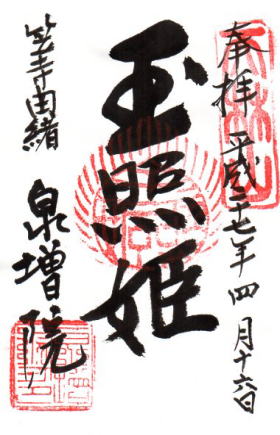 奉拝 平成二七年四月十六日
玉照姫
笠寺由緒
泉増院